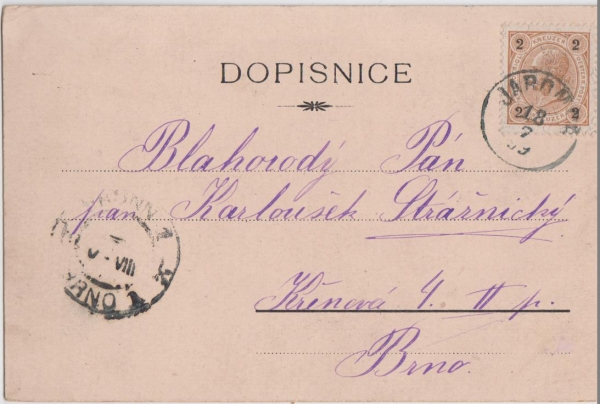 DOPISNICE
2 KREUZER 2
2 2
JAROM
18
7
99
Blahorodý Pán
pan Karloušek Strážnický
Křenová 4. II p.
Brno.
BRÜNN
VIII
BRNO
1